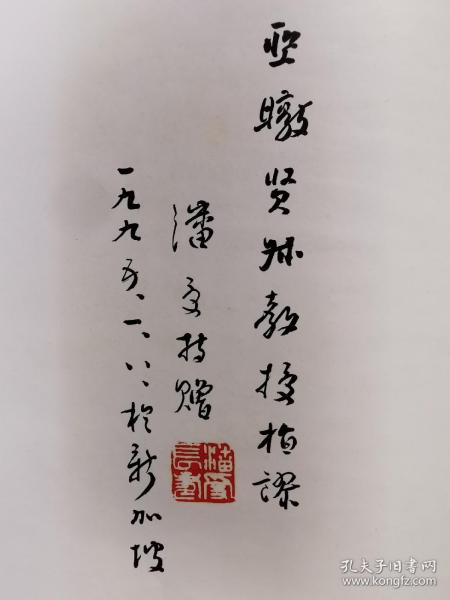 亚暾贤教授指谬
潘受持赠
一九九五、一、八、於新加坡
潘受
孔夫子旧书网
www.kongfz.com